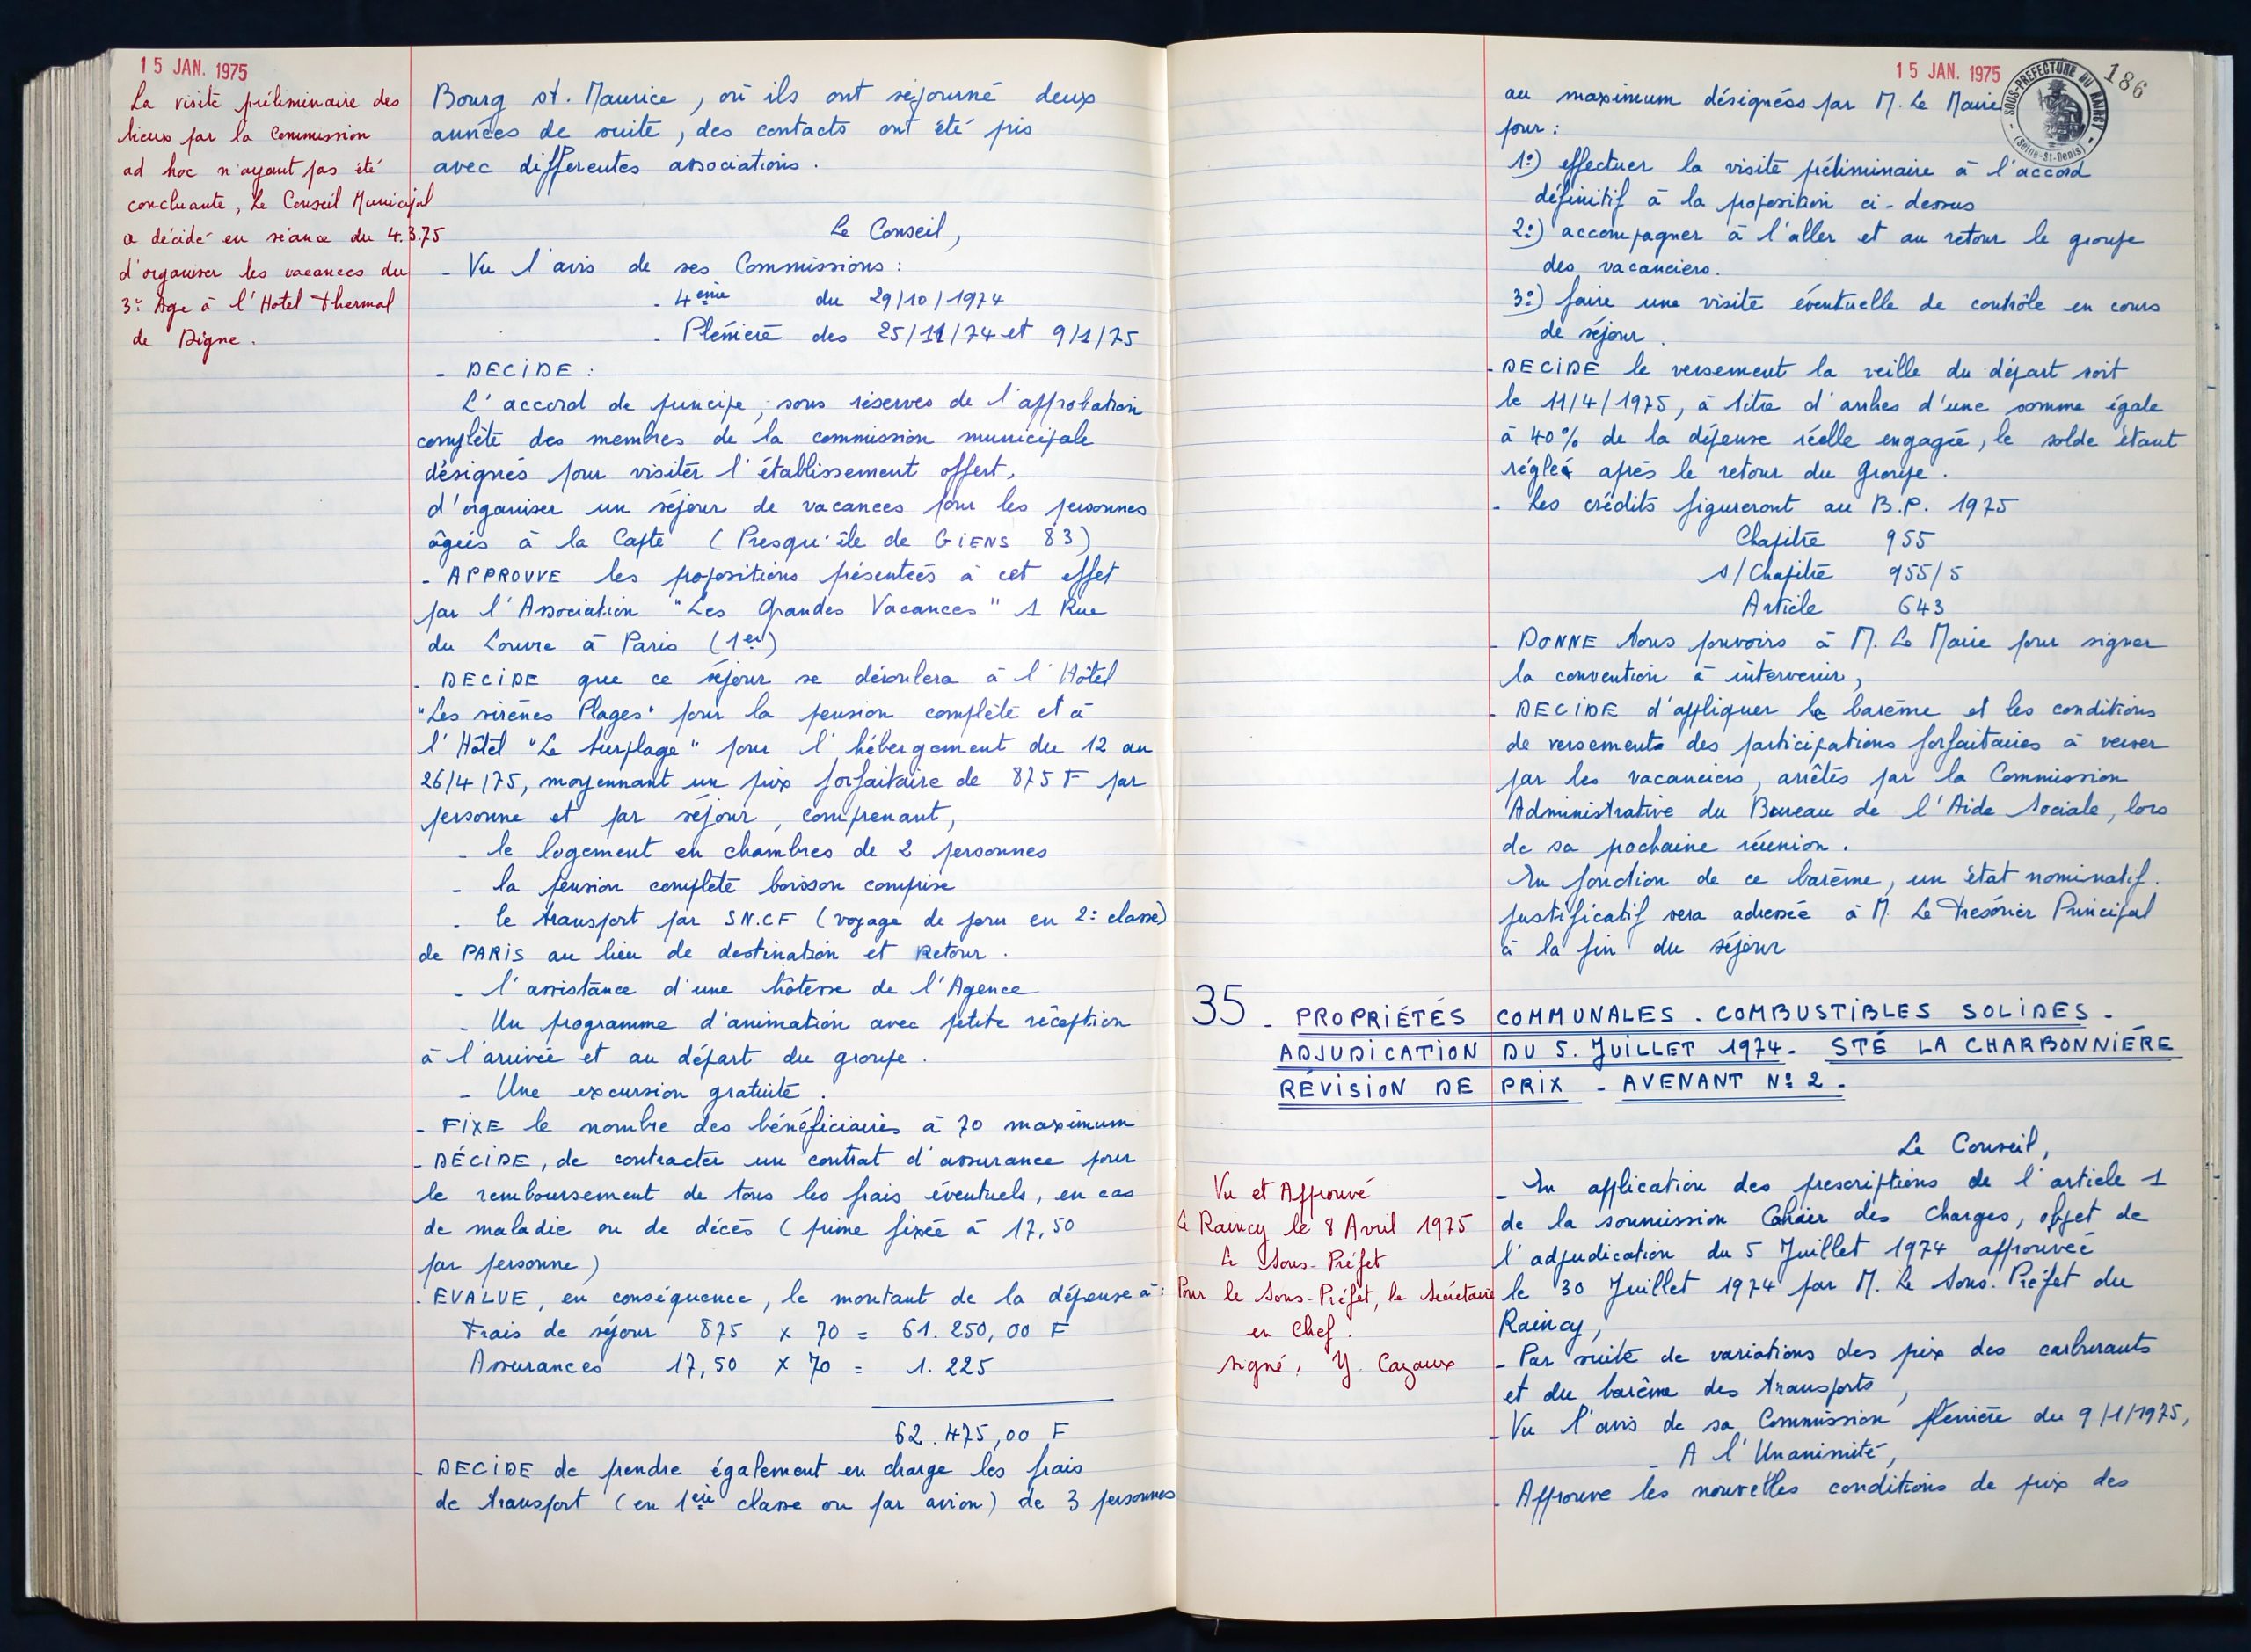 15 JAN. 1975
La visite préliminaire des
lieux par la Commission
ad hoc n'ayant pas été
concluante, Le Conseil Municipal
a décidé en séance du 4.3.75
d'organiser les vacances du
3è Age à l'Hotel Thermal
de Digne.
Bourg st. Maurice, où ils ont séjourné deux
années de suite, des contacts ont été pris
avec différentes associations.
Le Conseil,
- Vu l'avis de ses Commissions :
- 4ème du 29/10/1974
- Plénière des 25/11/74 et 9/1/75
- DECIDE :
L'accord de principe, sous réserves de l'approbation
complète des membres de la commission municipale
désignés pour visiter l'établissement offert,
d'organiser un séjour de vacances pour les personnes
âgées à la Capte (Presqu'île de GIENS 83)
- APPROUVE les propositions présentées à cet effet
par l'Association "Les Grandes Vacances" 1 Rue
du Louvre à Paris (1er)
- DECIDE que ce séjour se déroulera à l'Hôtel
"Les sirènes Plages" pour la pension complète et à
l'Hôtel "Le Surplage" pour l'hébergement du 12 au
26/4/75, moyennant un prix forfaitaire de 875 F par
personne et par séjour, comprenant,
- le logement en chambres de 2 personnes
- la pension complète boisson comprise
- le transport par SN.CF (voyage de jour en 2è classe)
de PARIS au lieu de destination et Retour.
- l'assistance d'une hôtesse de l'Agence
- Un programme d'animation avec petite réception
à l'arrivée et au départ du groupe.
- Une excursion gratuite.
- FIXE le nombre des bénéficiaires à 70 maximum
- DÉCIDE, de contracter un contrat d'assurance pour
le remboursement de tous les frais éventuels, en cas
de maladie ou de décès (prime fixée à 17,50
par personne)
- EVALUE, en conséquence, le montant de la dépense à :
Frais de séjour 875 x 70 = 61.250,00 F
Assurances 17,50 x 70 = 1.225
62.475,00 F
- DECIDE de prendre également en charge les frais
de transport (en 1ère classe ou par avion) de 3 personnes
15 JAN. 1975
186
SOUS-PRÉFECTURE DU RAINCY
(Seine-St-Denis)
au maximum désignées par M. Le Maire
pour :
1°) effectuer la visite préliminaire à l'accord
définitif à la proposition ci-dessus
2°) accompagner à l'aller et au retour le groupe
des vacanciers.
3°) faire une visite éventuelle de contrôle en cours
de séjour.
- DECIDE le versement la veille du départ soit
le 11/4/1975, à titre d'arrhes d'une somme égale
à 40% de la dépense réelle engagée, le solde étant
réglé après le retour du Groupe.
- Les crédits figureront au B.P. 1975
Chapitre 955
s/Chapitre 955/5
Article 643
- DONNE tous pouvoirs à M. Le Maire pour signer
la convention à intervenir,
- DECIDE d'appliquer le barème et les conditions
de versements des participations forfaitaires à verser
par les vacanciers, arrêtés par la Commission
Administrative du Bureau de l'Aide Sociale, lors
de sa prochaine réunion.
En fonction de ce barème, un état nominatif.
justificatif sera adressée à M. Le Trésorier Principal
à la fin du séjour
35 - PROPRIÉTÉS COMMUNALES. COMBUSTIBLES SOLIDES -
ADJUDICATION DU 5. JUILLET 1974 - STÉ LA CHARBONNIÈRE
RÉVISION DE PRIX - AVENANT N° 2 -
Vu et Approuvé
Le Raincy le 8 Avril 1975
Le Sous-Préfet
Pour le Sous-Préfet, le Secrétaire
en Chef.
signé, Y. Cazaux
Le Conseil,
- En application des prescriptions de l'article 1
de la soumission Cahier des Charges, objet de
l'adjudication du 5 Juillet 1974 approuvée
le 30 Juillet 1974 par M. Le Sous-Préfet du
Raincy,
- Par suite de variations des prix des carburants
et du barème des transports,
- Vu l'avis de sa Commission plénière du 9/1/1975,
- A l'Unanimité,
- Approuve les nouvelles conditions de prix des